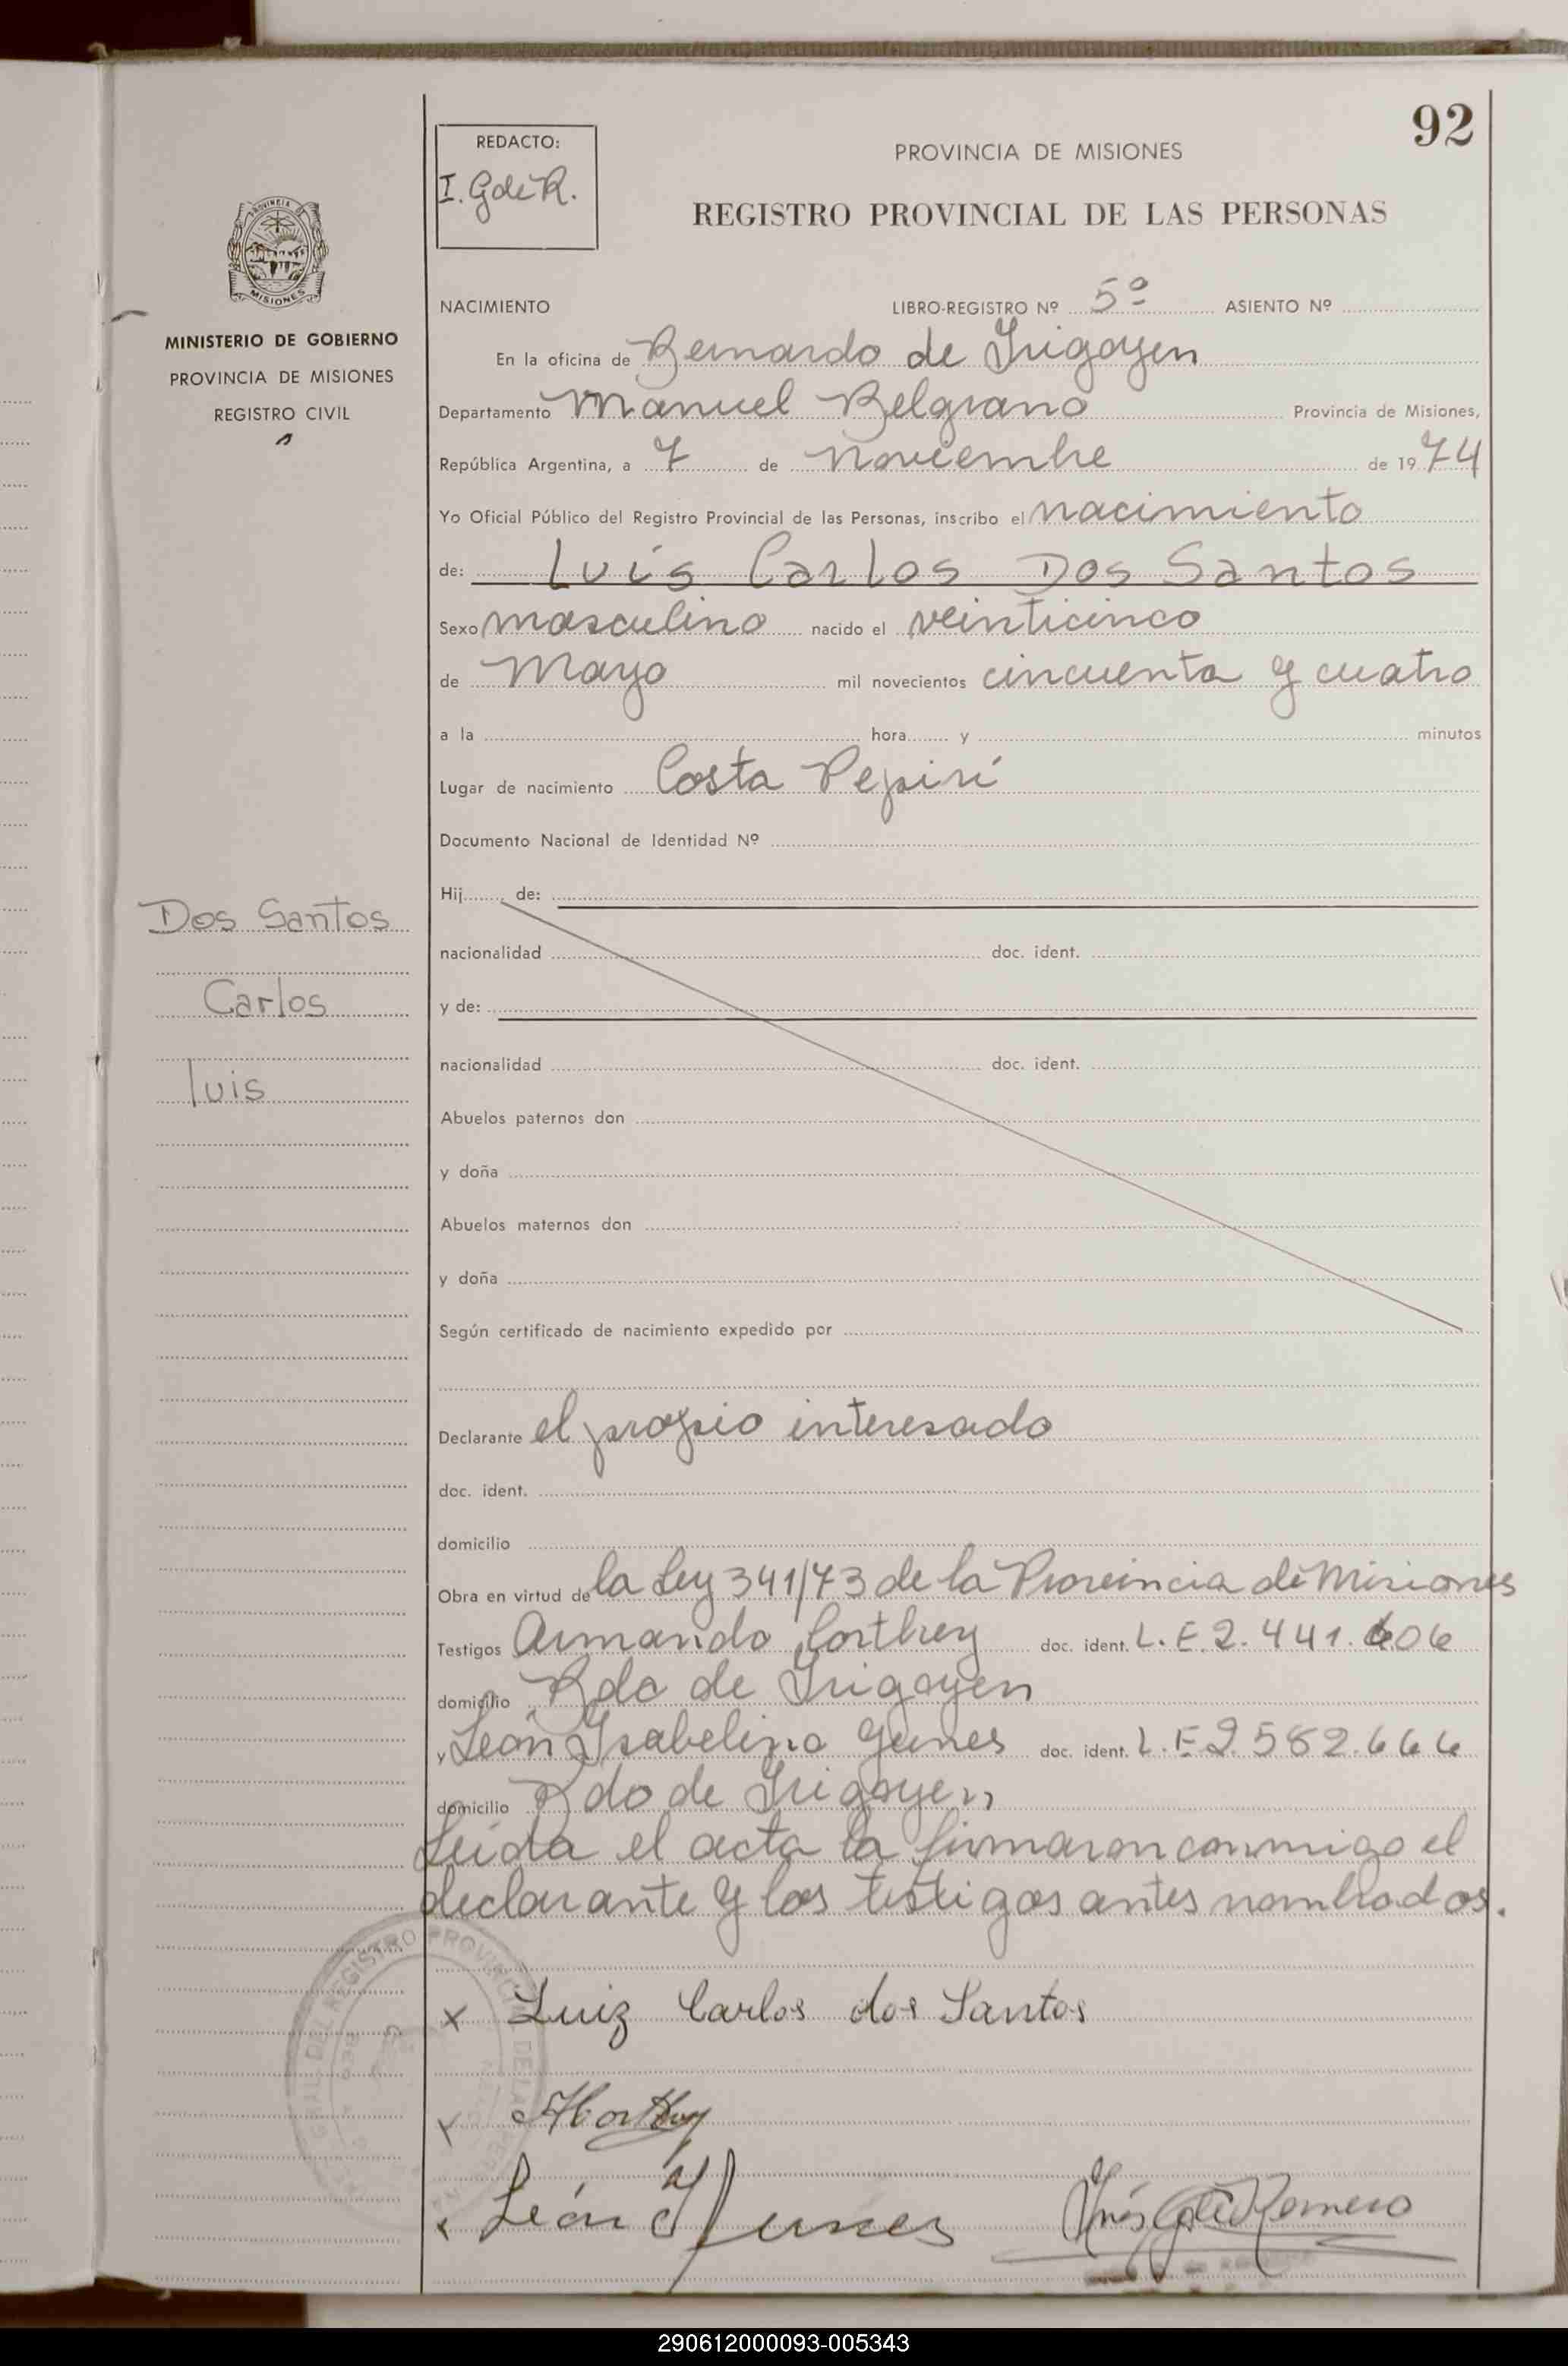 92
REDACTO:
I. G de R.
PROVINCIA DE MISIONES
REGISTRO PROVINCIAL DE LAS PERSONAS
PROVINCIA DE
MISIONES
MINISTERIO DE GOBIERNO
PROVINCIA DE MISIONES
REGISTRO CIVIL
NACIMIENTO LIBRO-REGISTRO Nº 5º ASIENTO Nº
En la oficina de Bernardo de Irigoyen
Departamento Manuel Belgrano Provincia de Misiones,
República Argentina, a 7 de noviembre de 1974
Yo Oficial Público del Registro Provincial de las Personas, inscribo el nacimiento
de: Luis Carlos Dos Santos
Sexo masculino nacido el veinticinco
de Mayo mil novecientos cincuenta y cuatro
a la hora y minutos
Lugar de nacimiento Costa Pepirí
Documento Nacional de Identidad Nº
Hij de:
Dos Santos
nacionalidad doc. ident.
Carlos
y de:
nacionalidad doc. ident.
Luis
Abuelos paternos don
y doña
Abuelos maternos don
y doña
Según certificado de nacimiento expedido por
Declarante el propio interesado
doc. ident.
domicilio
Obra en virtud de la Ley 341/73 de la Provincia de Misiones
Testigos Armando Corthey doc. ident. L.E. 2.441.606
domicilio Bdo de Irigoyen
y León Isabelino Yunes doc. ident. L.E 2.582.666
domicilio Bdo de Irigoyen
Leída el acta la firmaron conmigo el
declarante y los testigos antes nombrados.
x Luiz Carlos dos Santos
x ACorthey
x León I Yunes Inés G de Romero
290612000093-005343